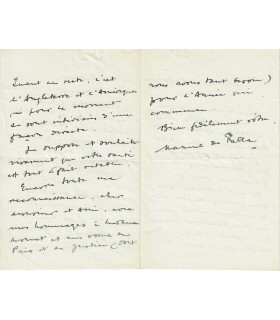 Quant au reste, c'est
l'Angleterre et l'Amérique
qui pour le moment
se sont intéressés d'une
façon directe.
Je suppose et souhaite
vivement que votre santé
est tout à fait rétablie.
Encore toute ma
reconnaissance, cher
Monsieur et Ami, avec
mes hommages à Madame
et nos vœux de
Paix et de Justice (dont
nous avons tant besoin)
pour l'Année qui
commence.
Bien fidèlement vôtre.
Manuel de Falla